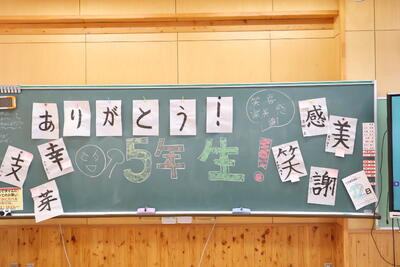 ありがとう!
感
美
支
幸
5年生
笑
謝
芽